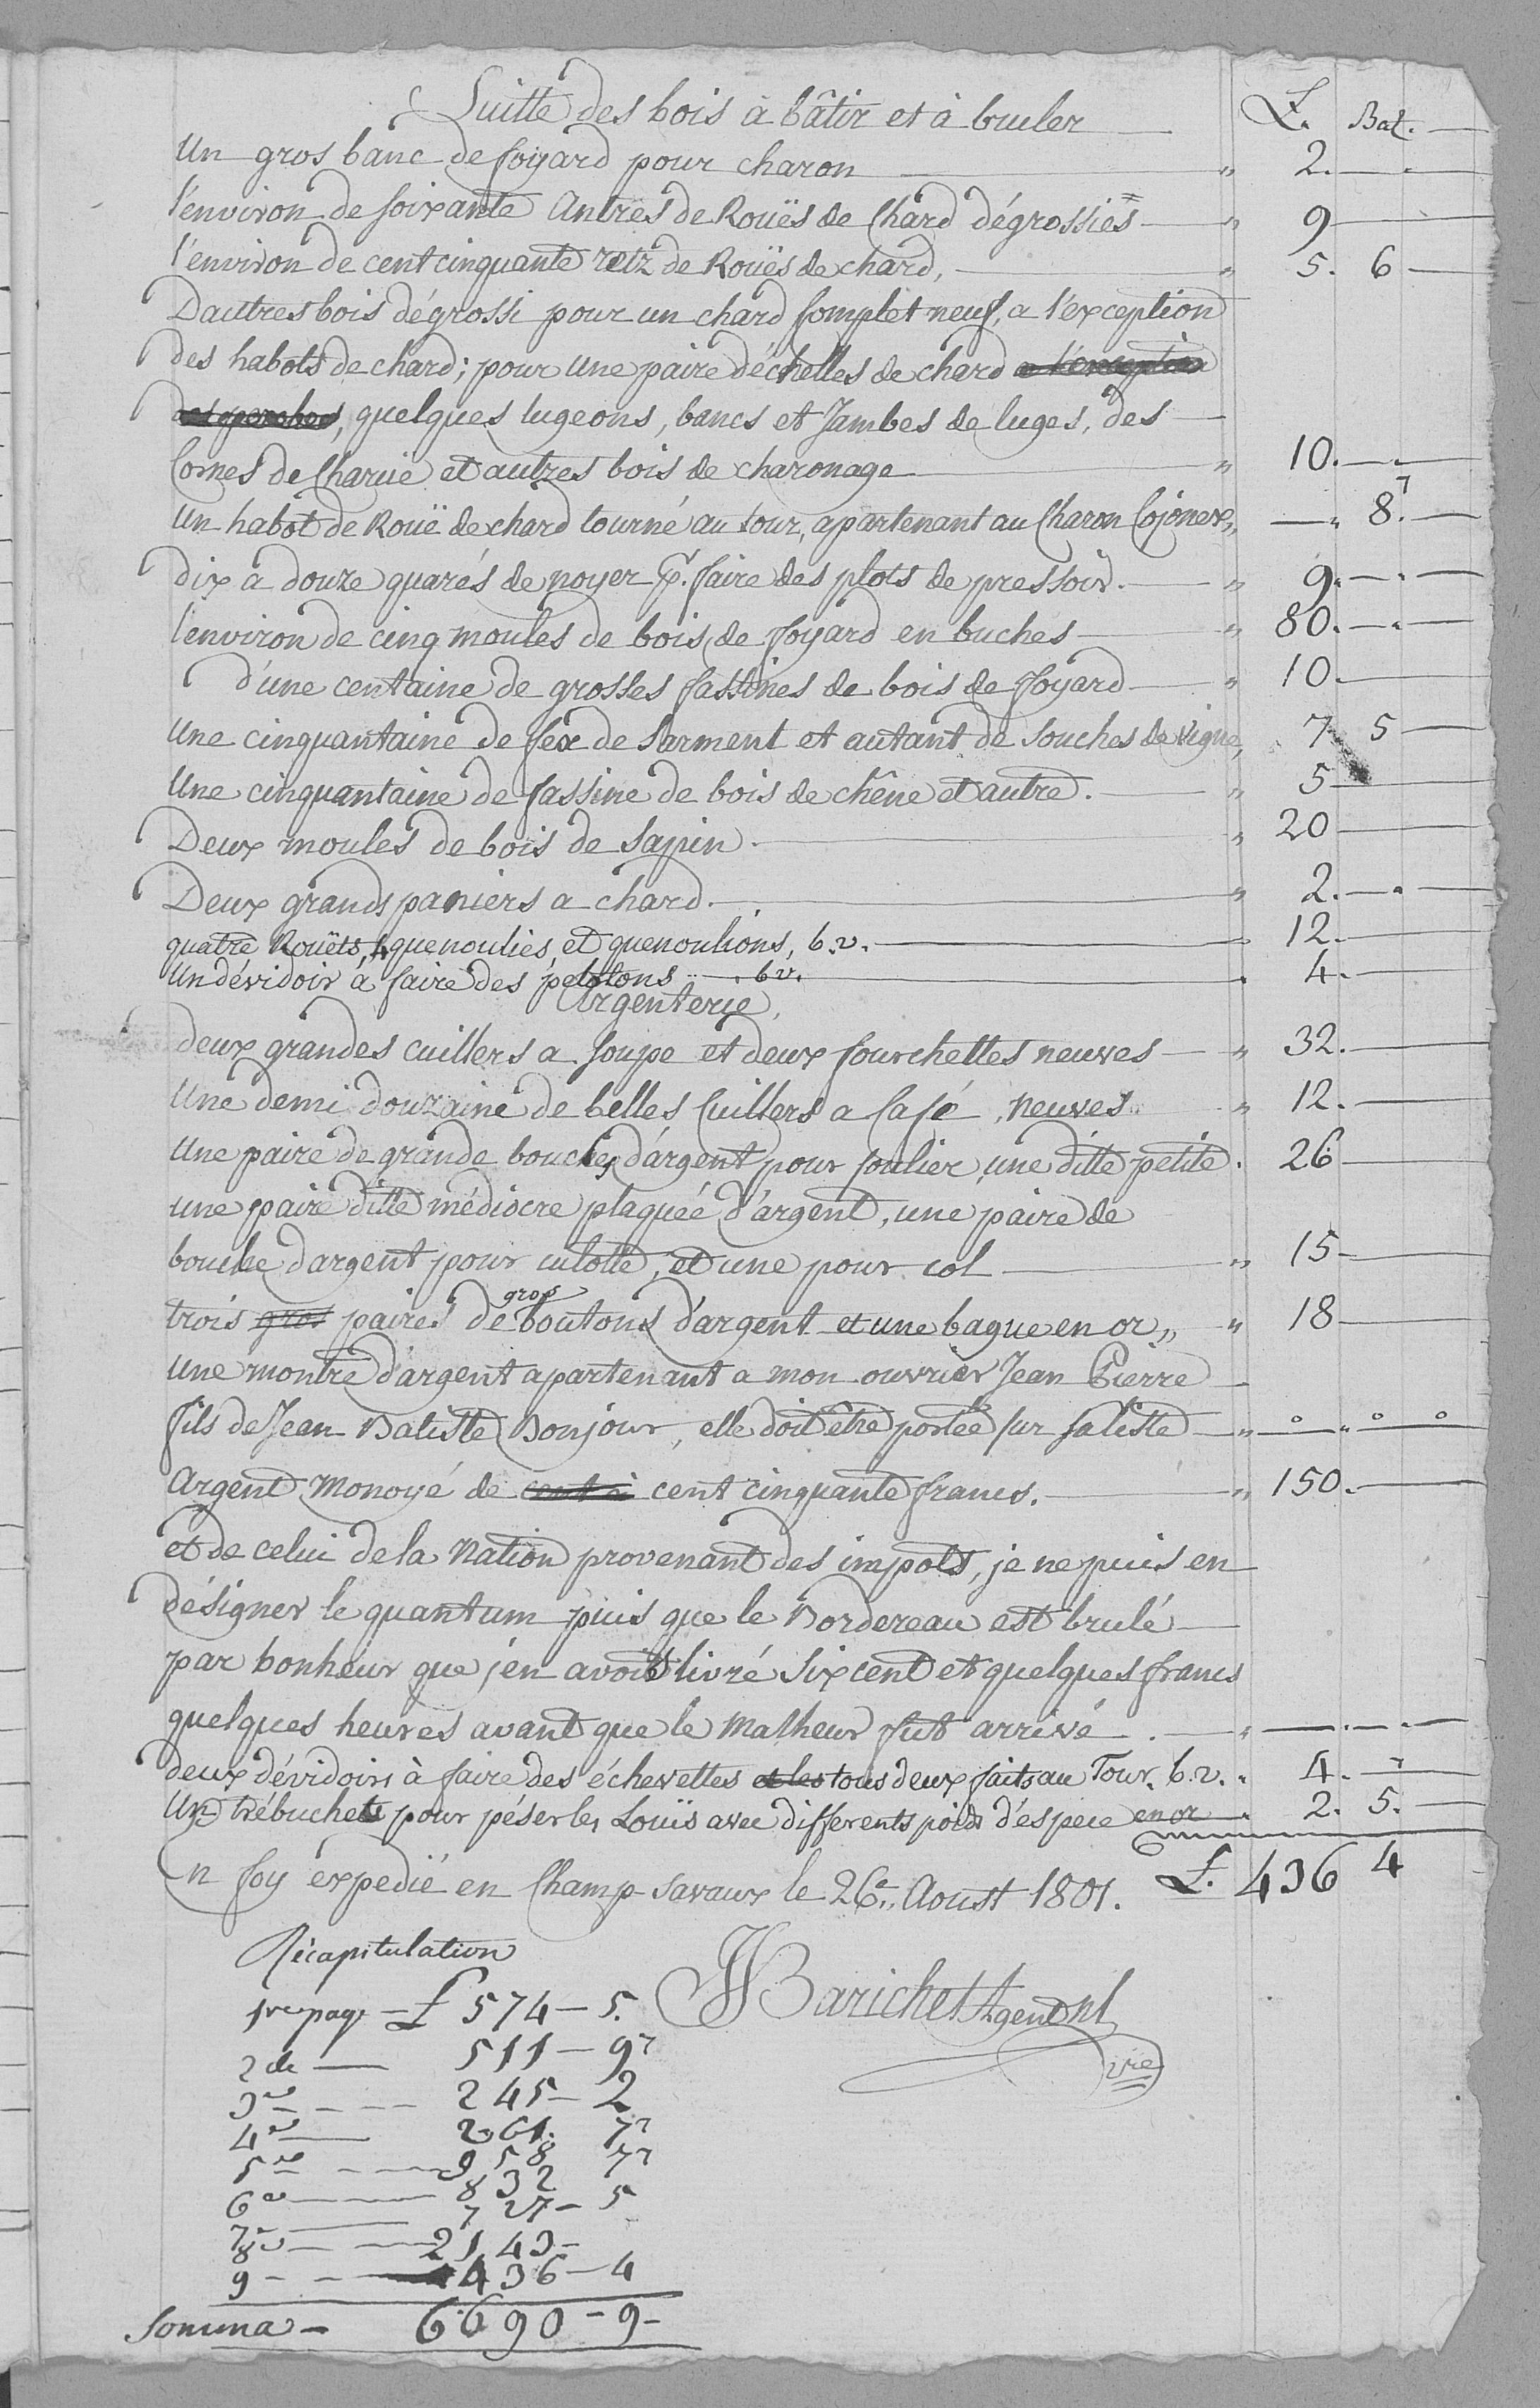 Suitte des bois à bâtir et à bruler L. Bat.
Un gros banc de foyard pour charon " 2.
l'environ de soixante Antres de Rouës de Chard dégrossies " 9
l'environ de cent cinquante retz de Rouës de chard, " 5. 6
Dautres bois dégrossi pour un chard complet neuf, a l'exception
des habots de chard; pour Une paire d'échelles de chard a l'exception
des perches, quelques lugeons, bancs et Jambes de luges, des
Cornes de Charüe et autres bois de charonage " 10.
Un habot de Rouë de chard tourné au tour, apartenant au Charon Cojonex, 8.
dix a douze quarés de noyer pr. faire des plots de pressoir. " 9.
l'environ de cinq moules de bois de foyard en buches " 80.
d'une centaine de grosses fassines de bois de foyard " 10
Une cinquantaine de fex de sarment et autant de souches de vigne, 7 5
Une cinquantaine de fassine de bois de chêne et autre. " 5
Deux moules de bois de sapin. " 20
Deux grands paniers a chard. " 2.
quatre Rouëts, 4 quenoulies et quenoulions, b.v. 12.
Un dévidoir à faire des pelotons b.v. 4.
Argenterie,
deux grandes cuillers a soupe et deux fourchettes neuves " 32.
Une demi douzaine de belles Cuillers a Café, neuves " 12.
Une paire de grande boucles d'argent pour soulier, une ditte petite. 26
une paire ditte médiocre plaquéé d'argent, une paire de
boucle d'argent pour culotte, et une pour col " 15
trois gros paires de gros boutons d'argent et une bague en or " 18
Une montre d'argent apartenant a mon ouvrier Jean Pierre
fils de Jean Batiste Bonjour, elle doit être portée sur sa liste " o o o
Argent Monoyé de cent ci cent cinquante francs. " 150.
et de celui de la Nation provenant des impots, je ne puis en
désigner le quantum puis que le Bordereau est brulé
par bonheur que j'en avois livré six cent et quelques francs
quelques heures avant que le Malheur fut arrivé.
deux dévidoirs à faire des échevettes et les tous deux faits au Tour. b.v. 4.
Un trébuchet pour péser les Louïs avec differents poids d'espece en or 2. 5.
En foy expedié en Champ-savaux le 26e. Aoust 1801. L. 436 4
Récapitulation
1re page L 574 - 5. JJ Barichet Agent nl
2de 511 - 9 vre
3me 245 - 2
4me 261. 7
5me 958 7
6me 832
7me 727 - 5
8me 2143 -
9 436 - 4
Somma - 6690 - 9 -